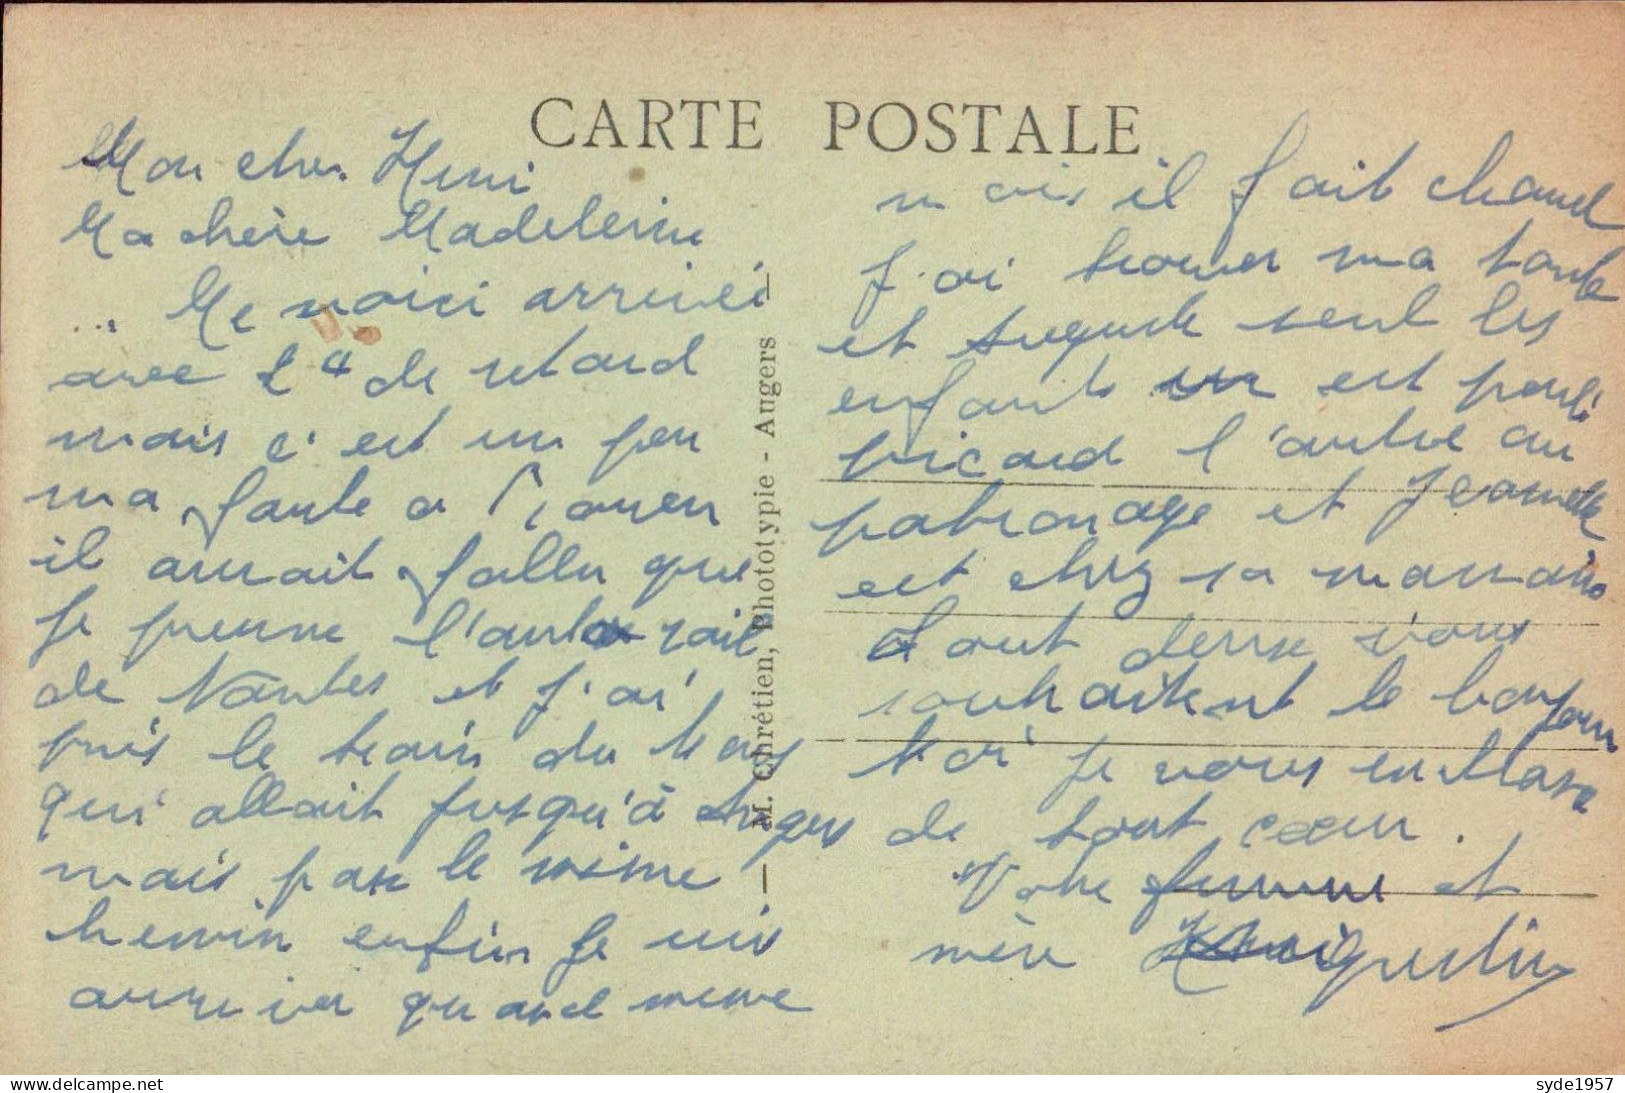 CARTE POSTALE
Mon cher Henri
Ma chère Madeleine
... Me voici arrivéé
avec 2 de retard
mais c'est un peu
ma faute a Rouen
il aurait fallu que
je prenne l'auto rail
de Nantes et j'ai
pris le train du
qui allait jusqu'à Angers
mais par le même
chemin enfin je suis
arriver quand meme
mais il fait chaud
J'ai trouver ma tante
et Auguste seul les
enfants un est parti
picard l'autre au
patronage et Jeannette
est chez sa marraine
Tout vous
souhaitent le bonjour
Moi je vous embrasse
de tout cœur.
Votre femme et
mère
— M. Chrétien, Phototypie - Angers —
www.delcampe.net
syde1957